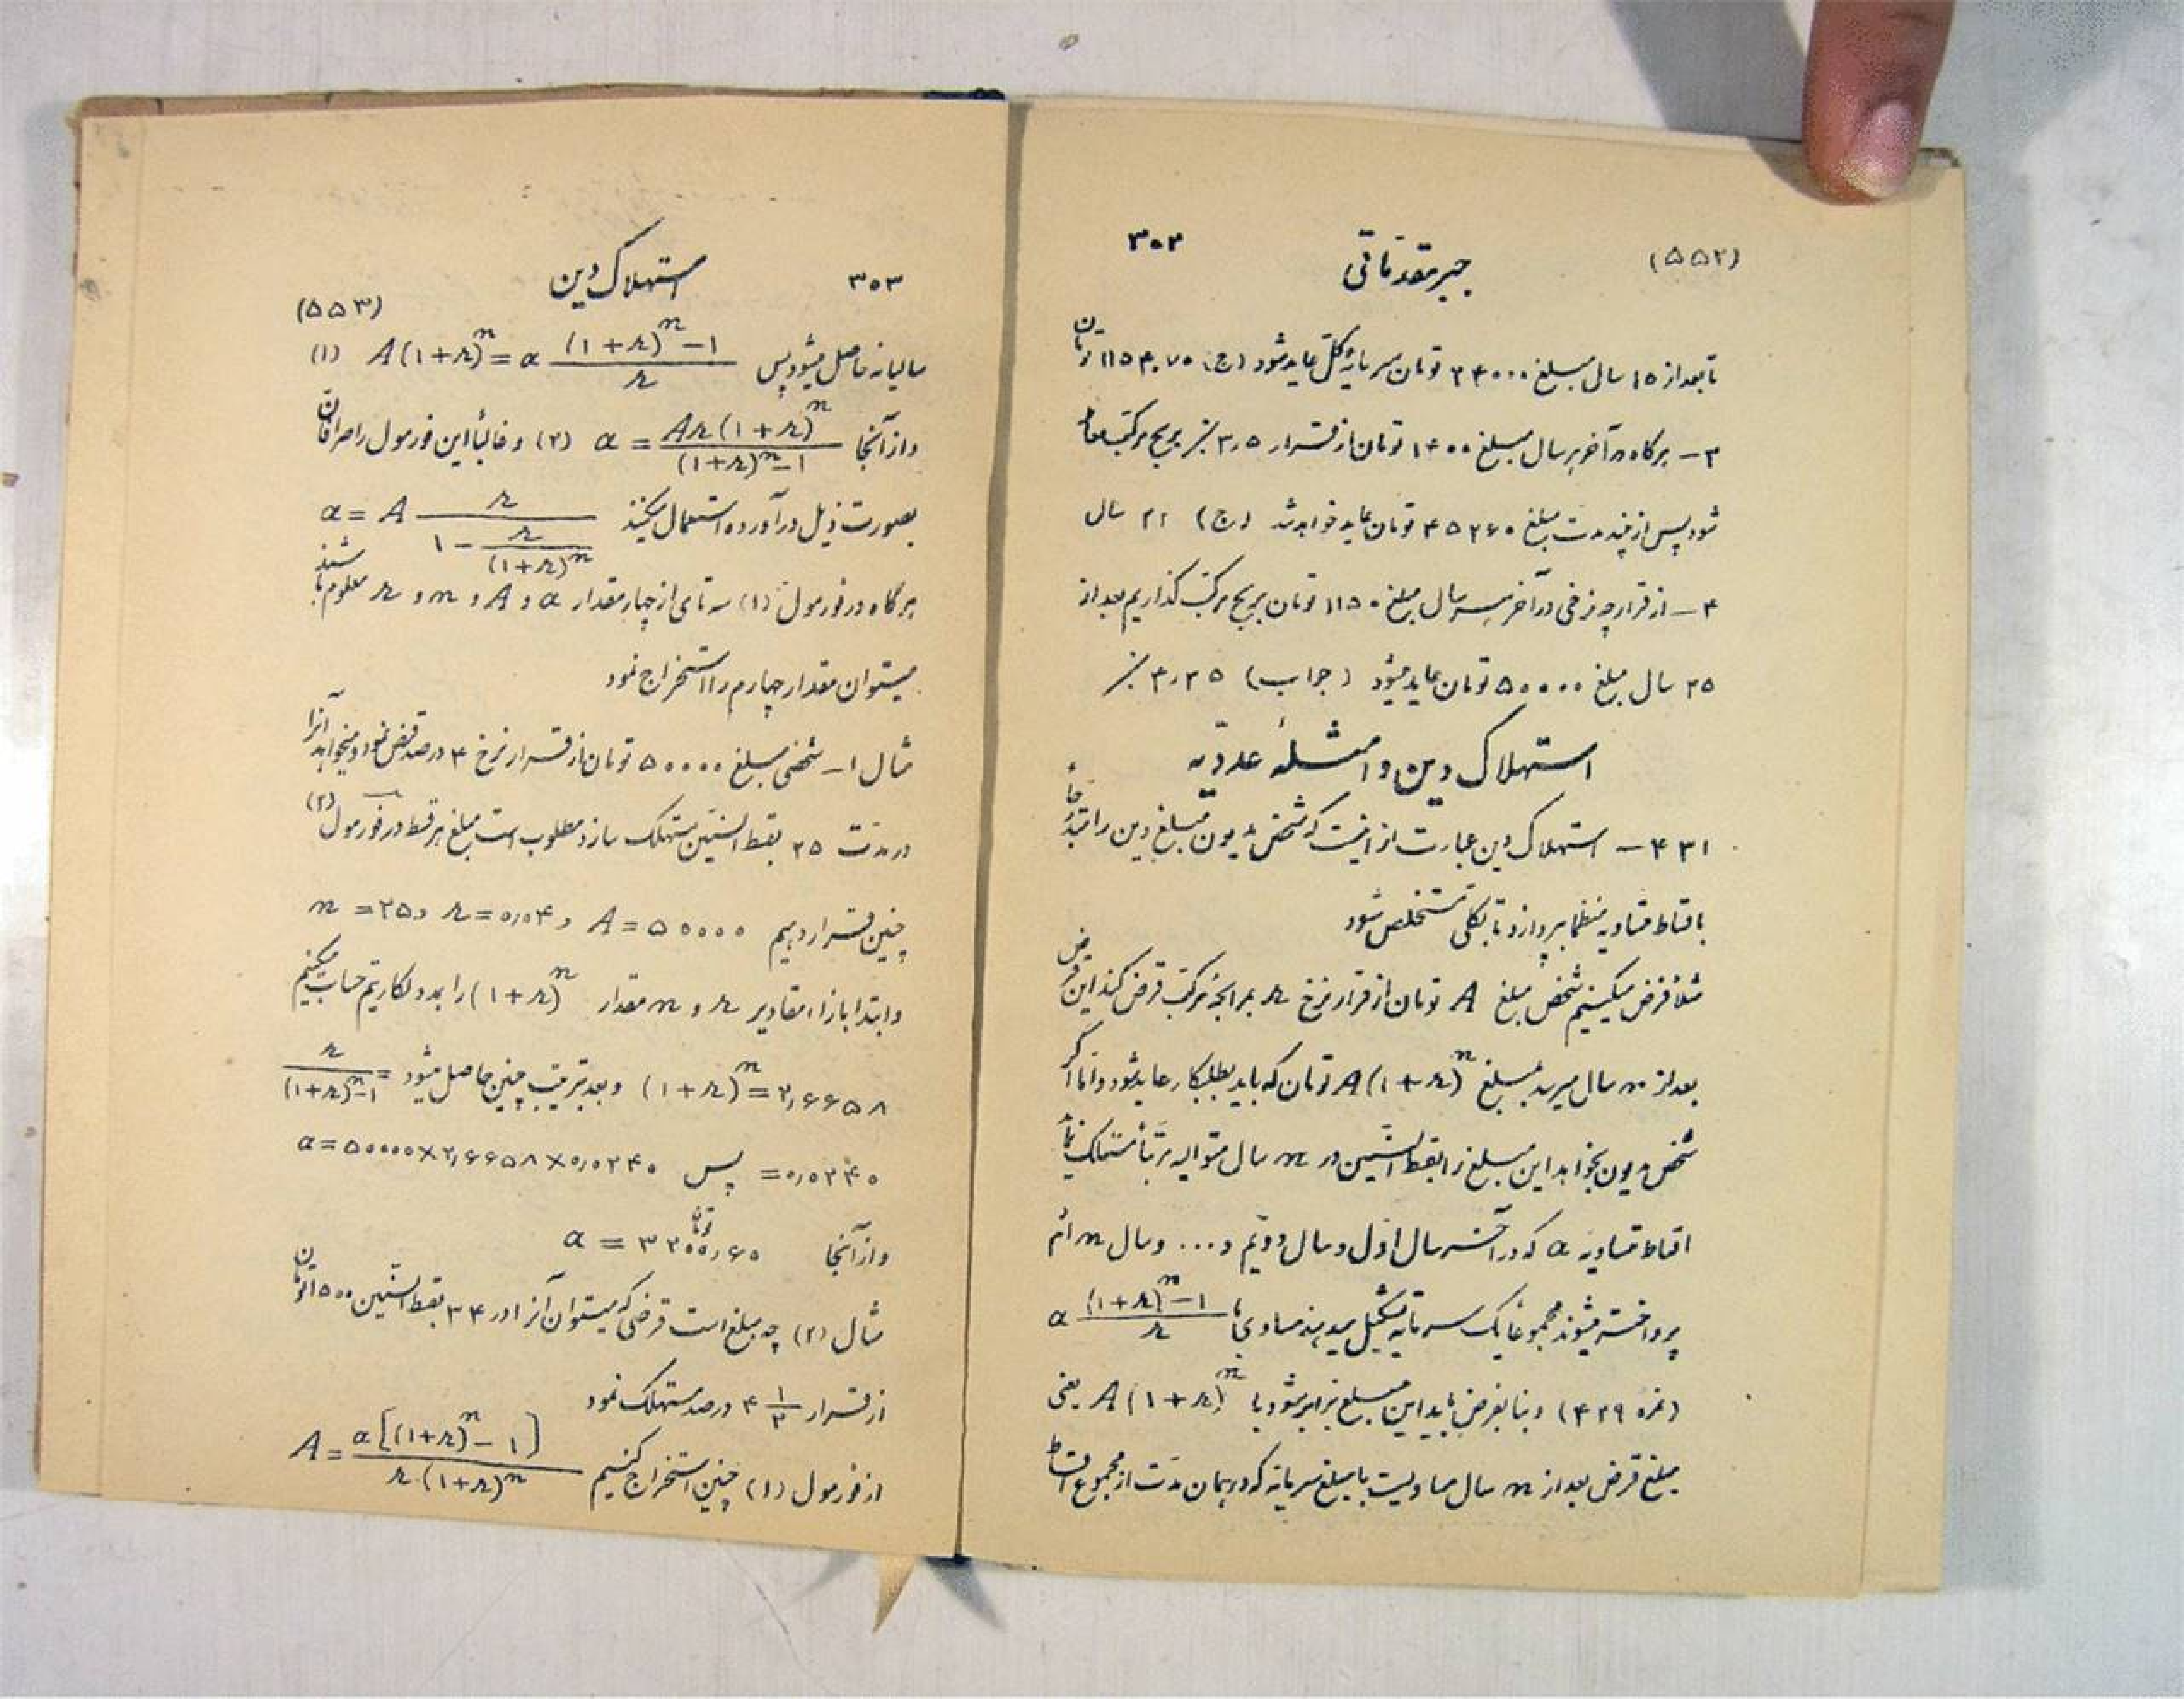 (۵۵۲) جبر مقدماتی ۳۰۲
تا بعد از ۱۵ سال مبلغ ۲۴۰۰۰ تومان سرمایه کل عاید شود (ج) ۱۱۵۴٫۷۰ تومان
۳- هرگاه در آخر هر سال مبلغ ۱۴۰۰ تومان از قرار ۳٫۵٪ بربح مرکب
شود پس از چند مدت مبلغ ۴۵۲۶۰ تومان عاید خواهد شد (ج) ۲۲ سال
۴- از قرار چه نرخی در آخر هر سال مبلغ ۱۱۵۰ تومان بربح مرکب گذاریم بعد از
۲۵ سال مبلغ ۵۰۰۰۰ تومان عاید میشود (جواب) ۴٫۲۵٪
استهلاک دین و امثلهٔ عددیه
۴۳۱- استهلاک دین عبارت از اینست که شخص مدیون مبلغ دین را متدرجاً
باقساط متساویه منظماً بپردازد تا بکلی مستخلص شود
مثلاً فرض میکنیم شخص مبلغ A تومان از قرار نرخ r بمرابحهٔ مرکب قرض کند این قرض
بعد از n سال میرسد بمبلغ A(1+r)^n تومان که باید بطلبکار عاید شود و اما اگر
شخص مدیون بخواهد این مبلغ را بقسط السنین در n سال متوالیه مرتباً مستهلک نماید
اقساط متساویه a که در آخر سال اول و سال دویم و... و سال n ام
پرداخته میشوند مجموعاً یک سرمایه تشکیل میدهند مساوی با a ((1+r)^n-1)/r
(نمره ۴۲۹) و بنا بفرض باید این مبلغ برابر شود با A(1+r)^n یعنی
مبلغ قرض بعد از n سال مساویست با مبلغ سرمایه که در همان مدت از مجموع اقساط
۳۰۳ استهلاک دین (۵۵۳)
سالیانه حاصل میشود پس A(1+r)^n = a ((1+r)^n-1)/r (۱)
و از آنجا a = Ar(1+r)^n/((1+r)^n-1) (۲) و غالباً این فورمول را صرافان
بصورت ذیل در آورده استعمال میکنند a = A r/(1 - r/(1+r)^n)
هرگاه در فورمول (۱) سه تای از چهار مقدار a و A و n و r معلوم باشند
میتوان مقدار چهارم را استخراج نمود
مثال ۱- شخصی مبلغ ۵۰۰۰۰ تومان از قرار نرخ ۴ درصد قرض نمود و میخواهد آنرا
در مدت ۲۵ بقسط السنین مستهلک سازد مطلوب است مبلغ هر قسط در فورمول (۲)
چنین قرار دهیم A = ۵۰۰۰۰ و r = ۰٫۰۴ و n = ۲۵
و ابتدا بازاء مقادیر r و n مقدار (1+r)^n را بمدد لگاریتم حساب میکنیم
(1+r)^n = ۲٫۶۶۵۸ و بعد بترتیب چنین حاصل میشود r/((1+r)^n-1) =
= ۰٫۰۲۴۰ پس a = ۵۰۰۰۰×۲٫۶۶۵۸×۰٫۰۲۴۰
و از آنجا a = ۳۲۰۰٫۶۰ تومان
مثال (۲) چه مبلغ است قرضی که میتوان آنرا در ۳۴ بقسط السنین ۱۵۰۰ تومان
از قرار ۴ ۱/۲ درصد مستهلک نمود
از فورمول (۱) چنین استخراج کنیم A = a[(1+r)^n-1]/(r.(1+r)^n)